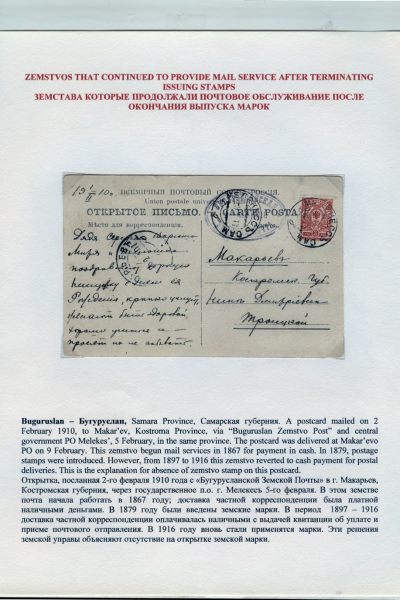 ZEMSTVOS THAT CONTINUED TO PROVIDE MAIL SERVICE AFTER TERMINATING
ISSUING STAMPS
ЗЕМСТАВА КОТОРЫЕ ПРОДОЛЖАЛИ ПОЧТОВОЕ ОБСЛУЖИВАНИЕ ПОСЛЕ
ОКОНЧАНИЯ ВЫПУСКА МАРОК
ВСЕМІРНЫЙ ПОЧТОВЫЙ РОССІЯ.
Union postale
ОТКРЫТОЕ ПИСЬМО. CARTE POSTA
Мѣсто для корреспонденціи.
Макарьевъ
Костромск. Губ.
Троицкой
Buguruslan – Бугуруслан, Samara Province, Самарская губерния. A postcard mailed on 2
February 1910, to Makar'ev, Kostroma Province, via "Buguruslan Zemstvo Post" and central
government PO Melekes', 5 February, in the same province. The postcard was delivered at Makar'evo
PO on 9 February. This zemstvo begun mail services in 1867 for payment in cash. In 1879, postage
stamps were introduced. However, from 1897 to 1916 this zemstvo reverted to cash payment for postal
deliveries. This is the explanation for absence of zemstvo stamp on this postcard.
Открытка, посланная 2-го февраля 1910 года с «Бугурусланской Земской Почты» в г. Макарьев,
Костромская губерния, через государственное п.о. г. Мелекесь 5-го февраля. В этом земстве
почта начала работать в 1867 году; доставка частной корреспонденции была платной
наличными деньгами. В 1879 году были введены земские марки. В период 1897 – 1916
доставка частной корреспонденции оплачивалась наличными с выдачей квитанции об уплате и
приеме почтового отправления. В 1916 году вновь стали применятся марки. Эти решения
земской управы объясняют отсутствие на открытке земской марки.